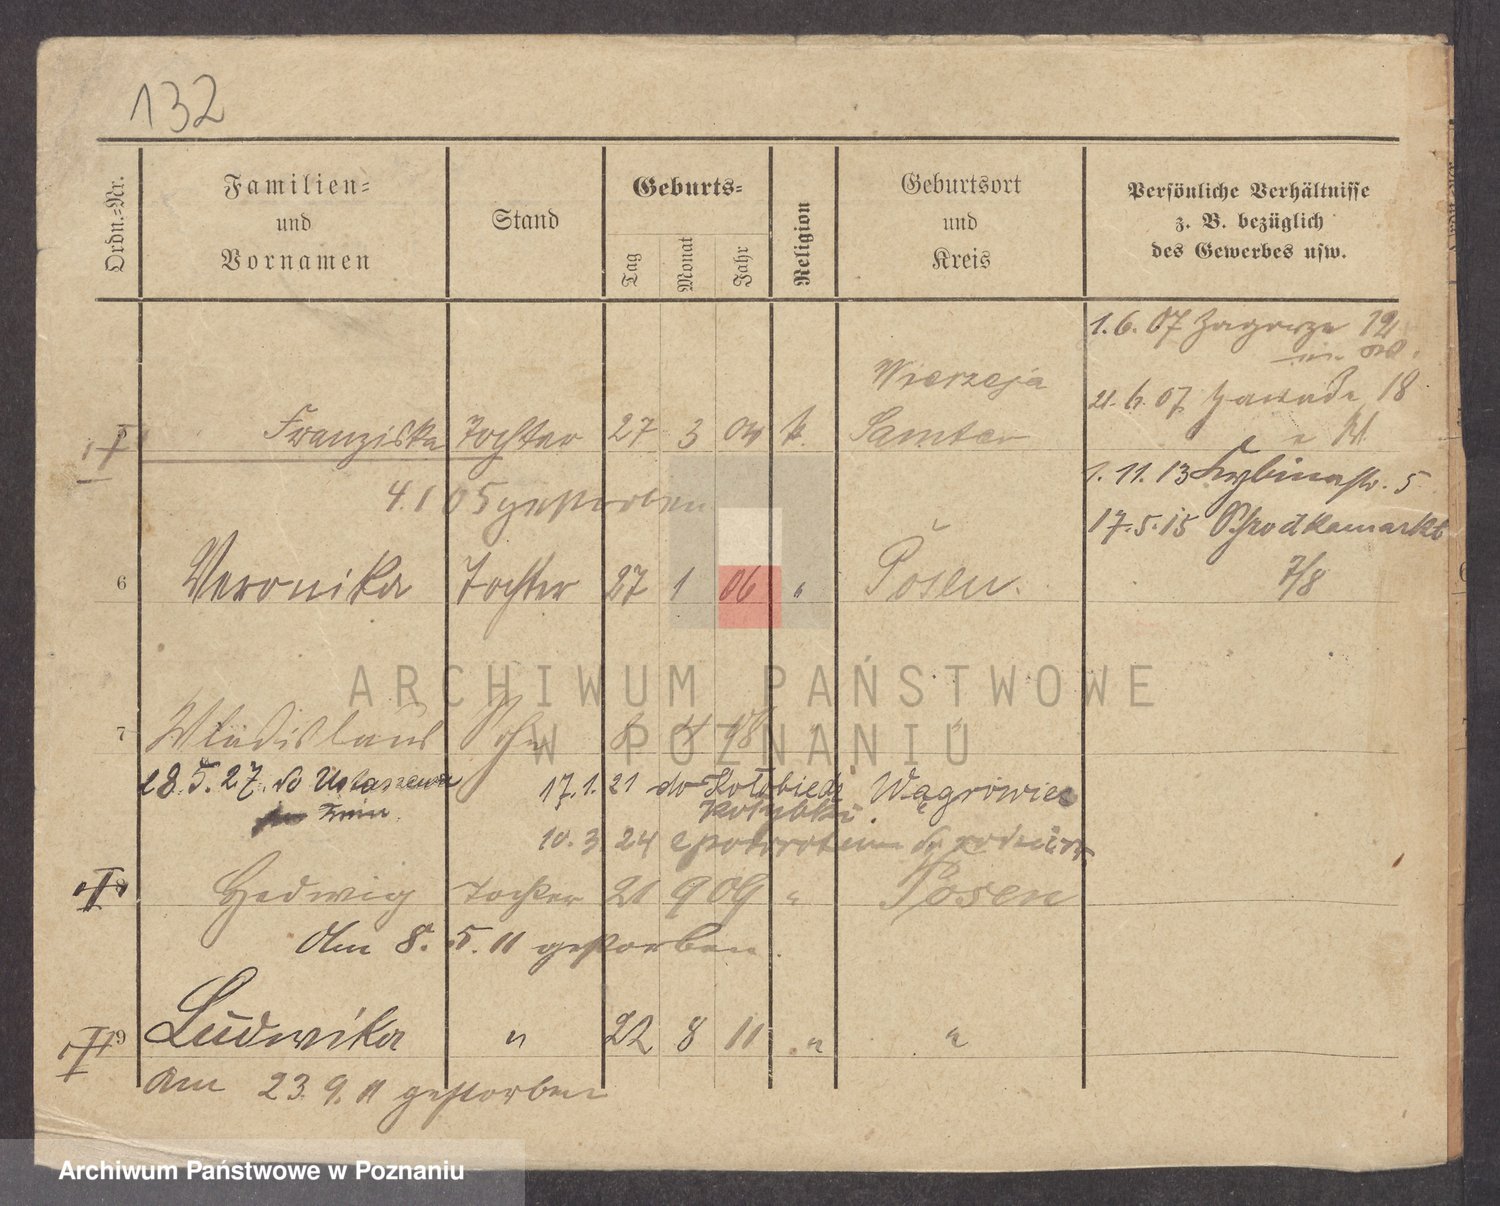 132
Ordn.-Nr.
Familien-
und
Vornamen
Stand
Geburts-
Tag
Monat
Jahr
Religion
Geburtsort
und
Kreis
Persönliche Verhältnisse
z. B. bezüglich
des Gewerbes usw.
1. 6. 07 Zagorze 12
Wierzeja
21. 6. 07 Zawade 18
5 Franziska Tochter 27 3 04 k. Samter
1. 11. 13 Rybinastr. 5
4. 1 05 gestorben
17. 5. 15 Schrodkamarkt
7/8
6 Veronika Tochter 27 1 06 " Posen.
ARCHIWUM PAŃSTWOWE
W POZNANIU
7 Wladislaus Sohn 4 08
28. 5. 27. do Ustaszewa
Żnin.
17. 1. 21 do Wągrowiec
10. 3 24
8 Hedwig Tochter 21 9 09 " Posen
Am 8. 5. 11 gestorben.
9 Ludwika " 22 8 11 " "
am 23. 9. 11 gestorben
Archiwum Państwowe w Poznaniu